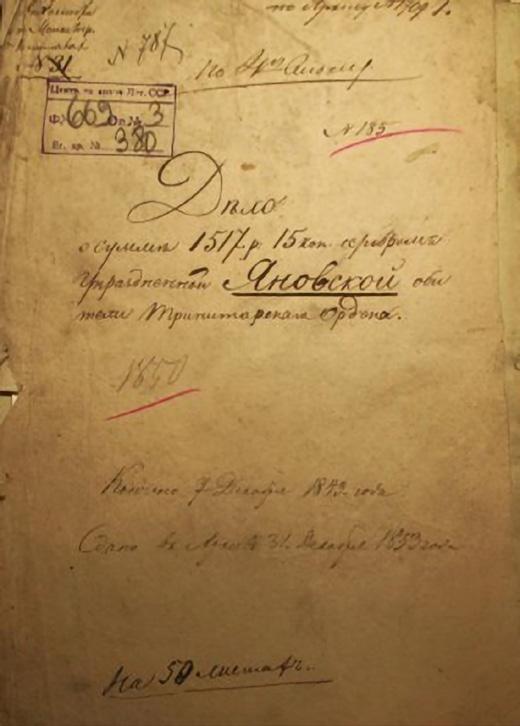 по Архиву №1709 г.
№ 787
№ 31
Центр. гос. архив Лит. ССР
Ф. № 669 Оп. № 3
Ег. хр. № 380
№ 185
Дѣло
о суммѣ 1517 р. 15 коп. серебромъ
упраздненной Яновской оби
тели Тринитарскаго Ордена.
1850
Кончено 7 Декабря 1843 года
Сдано въ Архивъ 31 Декабря 1853 года
На 50 листахъ.